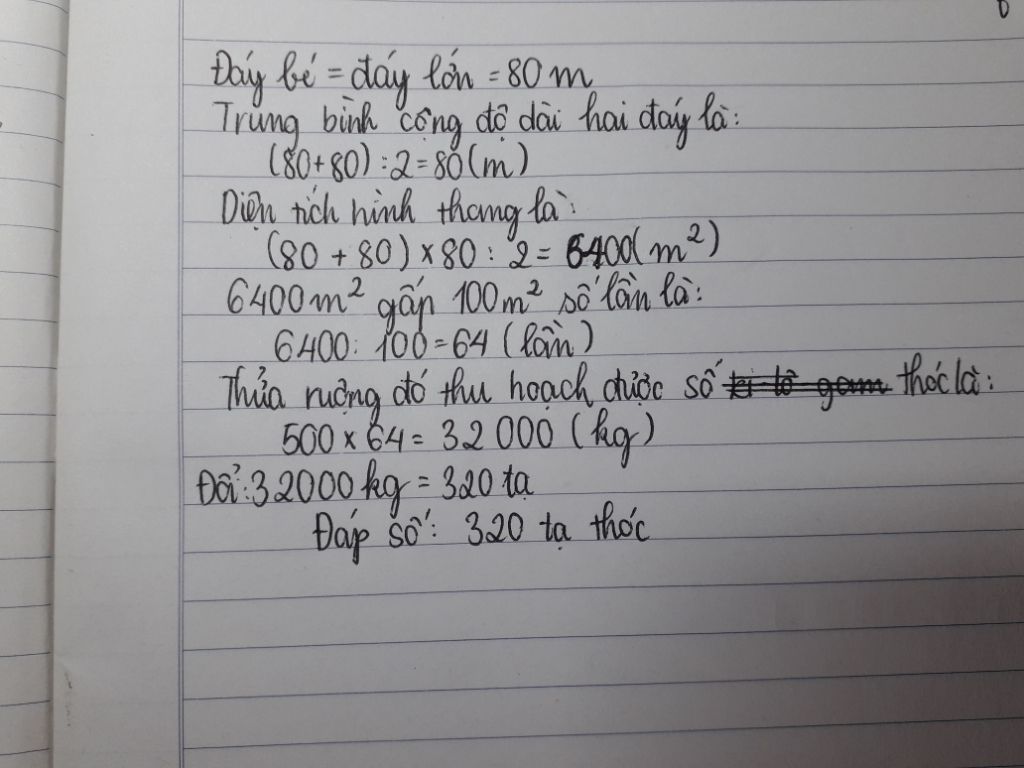 Đáy bé = đáy lớn = 80 m
Trung bình cộng độ dài hai đáy là:
(80+80) : 2 = 80 (m)
Diện tích hình thang là:
(80 + 80) × 80 : 2 = 6400 (m²)
6400 m² gấp 100 m² số lần là:
6400 : 100 = 64 (lần)
Thửa ruộng đó thu hoạch được số ki lô gam thóc là:
500 × 64 = 32 000 (kg)
Đổi: 32000 kg = 320 tạ
Đáp số: 320 tạ thóc